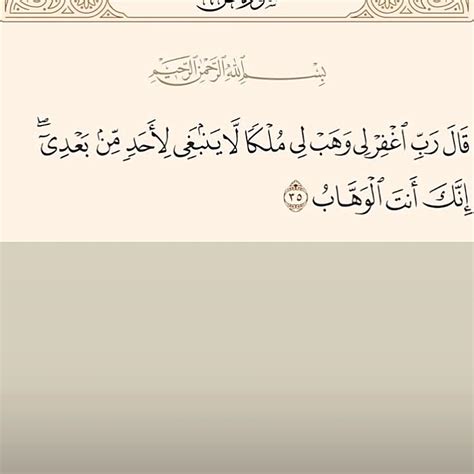 بِسْمِ ٱللَّهِ ٱلرَّحْمَٰنِ ٱلرَّحِيمِ
قَالَ رَبِّ ٱغْفِرْ لِى وَهَبْ لِى مُلْكًا لَّا يَنۢبَغِى لِأَحَدٍ مِّنۢ بَعْدِىٓ ۖ
إِنَّكَ أَنتَ ٱلْوَهَّابُ ٣٥